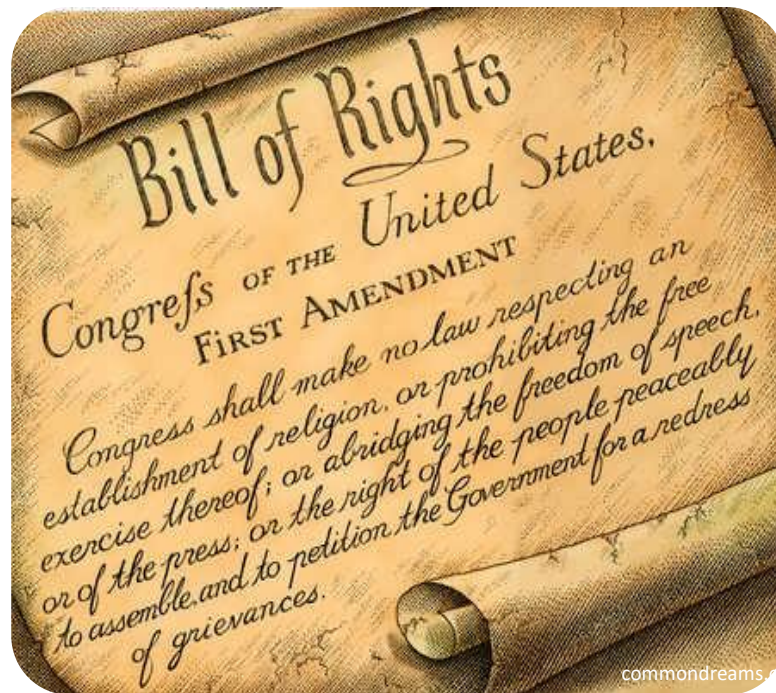 Bill of Rights
Congreſs OF THE United States.
FIRST AMENDMENT
Congress shall make no law respecting an
establishment of religion, or prohibiting the free
exercise thereof; or abridging the freedom of speech,
or of the press; or the right of the people peaceably
to assemble, and to petition the Government for a redress
of grievances.
commondreams.